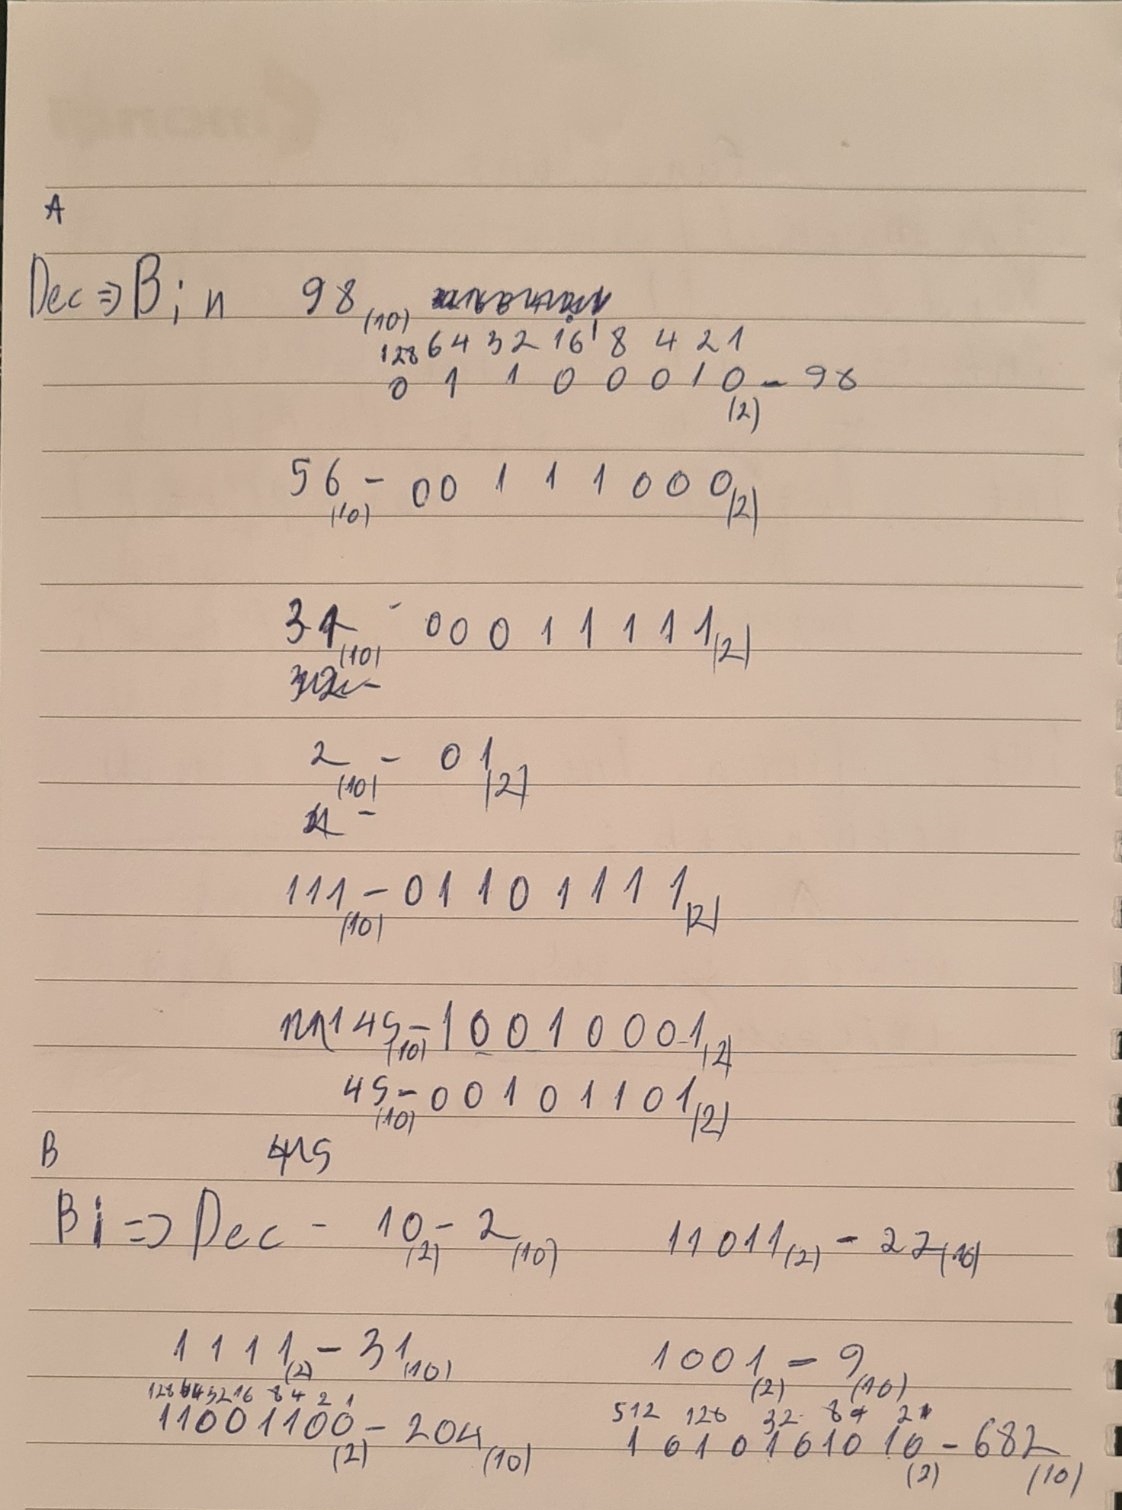 A
Dec => Bin 98(10)
128 64 32 16 8 4 2 1
0 1 1 0 0 0 1 0 - 98
(2)
56(10) - 00 1 1 1 0 0 0(2)
31(10) - 0 0 0 1 1 1 1 1(2)
2(10) - 0 1(2)
111(10) - 0 1 1 0 1 1 1 1(2)
145(10) - 1 0 0 1 0 0 0 1(2)
45(10) - 0 0 1 0 1 1 0 1(2)
B
Bi => Dec - 10(2) - 2(10) 11011(2) - 27(10)
1 1 1 1(2) - 31(10) 1001(2) - 9(10)
128 64 32 16 8 4 2 1 512 128 32 8 4 2 1
11001100(2) - 204(10) 1 0 1 0 1 0 1 0 1 0(2) - 682(10)